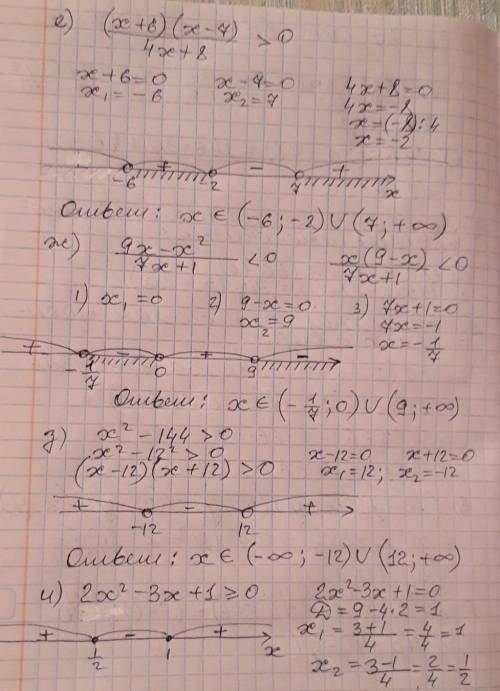 е) (x+8)(x-7) / 4x+8 > 0
x+6=0 x-7=0 4x+8=0
x₁=-6 x₂=7 4x=-8
x=(-8):4
x=-2
+ - +
-6 2 7 x
Ответ: x ∈ (-6; -2) ∪ (7; +∞)
ж) 9x-x² / 7x+1 < 0 x(9-x) / 7x+1 < 0
1) x₁=0 2) 9-x=0 3) 7x+1=0
x₂=9 7x=-1
x=-1/7
+ - + -
-1/7 0 9
Ответ: x ∈ (-1/7; 0) ∪ (9; +∞)
з) x²-144>0
x²-12²>0 x-12=0 x+12=0
(x-12)(x+12)>0 x₁=12; x₂=-12
+ - +
-12 12
Ответ: x ∈ (-∞; -12) ∪ (12; +∞)
и) 2x²-3x+1≥0 2x²-3x+1=0
Д=9-4·2=1
+ - + x₁=3+1/4=4/4=1
1/2 1 x
x₂=3-1/4=2/4=1/2